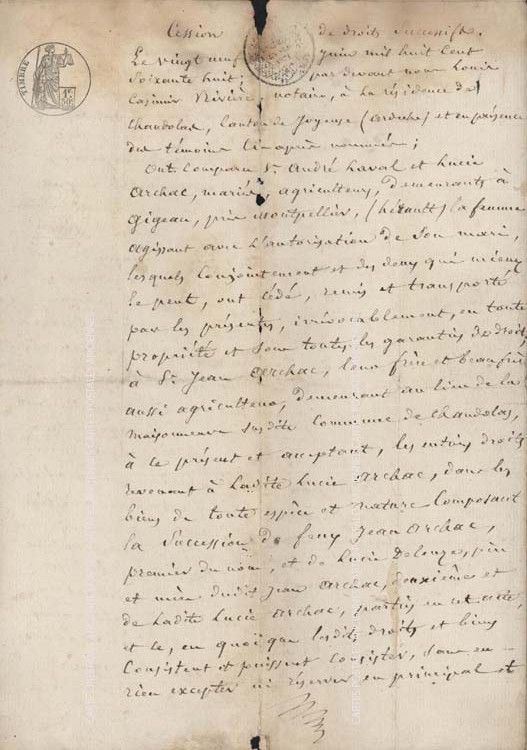 TIMBRE
Cession de droits Successifs.
Le vingt neuf juin mil huit Cent
Soixante huit; par devant nous Louis
Casimir Rivière, notaire, à la résidence de
Chandolas, Canton de Joyeuse (ardèche) et en présence
des témoins Ci-après nommés;
Ont Comparu Sr. André Laval et Lucie
Archac, mariés, agriculteurs, demeurants à
Gigean, près Montpellier, (hérault) la femme
agissant avec l'autorisation de Son mari,
lesquels Conjointement et des deux qui mieux
le peut, ont cédé, remis et transporté
par les présentes, irrévocablement, en toute
propriété et Sous toutes les garanties de droit,
à Sr. Jean Archac, leur frère et beaufrère
aussi agriculteur, demeurant au lieu de la
Maisonneuve Susdite Commune de Chandolas,
à ce présent et acceptant, les entiers droits
revenant à Ladite Lucie Archac, dans les
biens de toute espèce et nature Composant
la Succession de feux Jean Archac,
premier du nom, et de Lucie Delouze, père
et mère dudit Jean Archac, deuxième et
de Ladite Lucie Archac, parties en cet acte
et ce, en quoi que lesdits droits et biens
Consistent et puissent Consister, Sans en
rien excepter ni réserver en principal et